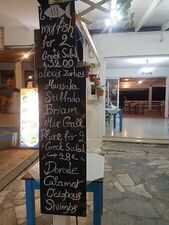 mixfish
for 2
Greek Salad
€32.00
alexis Zorbas
Mussaka
Stifado
Briam
Mix Grill
Plate for 2
Greek Salad
28€
Dorade
Calamari
Octopous
Srimbs